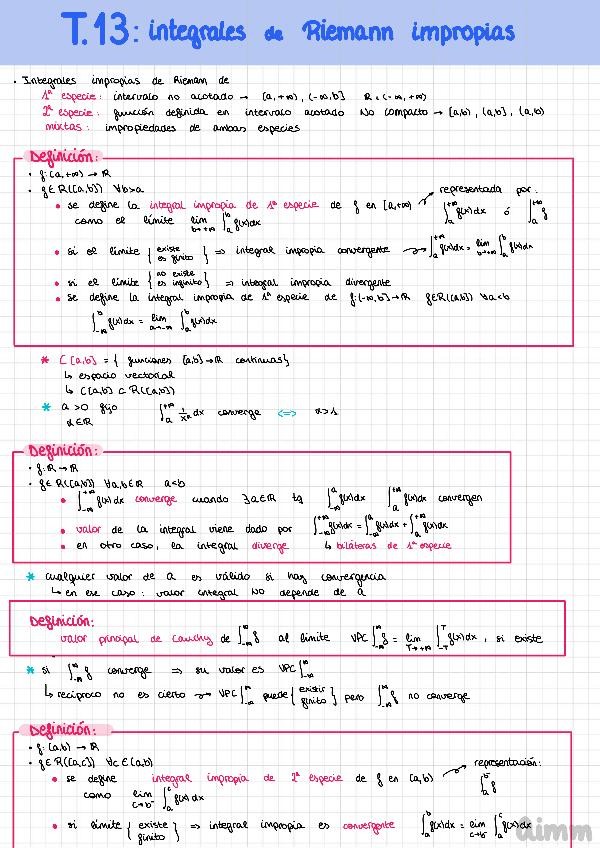 T.13: integrales de Riemann impropias
· Integrales impropias de Riemann de
1ª especie: intervalo no acotado → [a,+∞), (-∞,b] ℝ = (-∞,+∞)
2ª especie: función definida en intervalo acotado NO compacto → [a,b), (a,b], (a,b)
mixtas: impropiedades de ambas especies
Definición:
· f:[a,+∞) → ℝ
· f∈R([a,b]) ∀b>a
• se define la integral impropia de 1ª especie de f en [a,+∞) → representada por:
como el límite lim_{b→+∞} ∫_a^b f(x)dx ∫_a^{+∞} f(x)dx ó ∫_a^{+∞} f
• si el límite { existe es finito } ⇒ integral impropia convergente → ∫_a^{+∞} f(x)dx = lim_{b→+∞} ∫_a^b f(x)dx
• si el límite { no existe es infinito } ⇒ integral impropia divergente
• se define la integral impropia de 1ª especie de f:(-∞,b]→ℝ f∈R([a,b]) ∀a<b
∫_{-∞}^b f(x)dx = lim_{a→-∞} ∫_a^b f(x)dx
* C[a,b] = { funciones [a,b]→ℝ continuas}
↳ espacio vectorial
↳ C[a,b] ⊂ R([a,b])
* a>0 fijo ∫_a^{+∞} 1/x^α dx converge ⇔ α>1
α∈ℝ
Definición:
· f:ℝ→ℝ
· f∈R([a,b]) ∀a,b∈ℝ a<b
• ∫_{-∞}^{+∞} f(x)dx converge cuando ∃a∈ℝ tq ∫_{-∞}^a f(x)dx ∫_a^{+∞} f(x)dx convergen
• valor de la integral viene dado por ∫_{-∞}^{+∞} f(x)dx = ∫_{-∞}^a f(x)dx + ∫_a^{+∞} f(x)dx
• en otro caso, la integral diverge ↳ biláteras de 1ª especie
* cualquier valor de a es válido si hay convergencia
↳ en ese caso: valor integral NO depende de a
Definición:
valor principal de Cauchy de ∫_{-∞}^{∞} f al límite VPC ∫_{-∞}^{∞} f = lim_{T→+∞} ∫_{-T}^T f(x)dx, si existe
* si ∫_{-∞}^{∞} f converge ⇒ su valor es VPC ∫_{-∞}^{∞}
↳ recíproco no es cierto → VPC ∫_{-∞}^{∞} puede { existir finito } pero ∫_{-∞}^{∞} f no converge
Definición:
· f:[a,b) → ℝ
· f∈R([a,c]) ∀c∈(a,b)
• se define integral impropia de 2ª especie de f en [a,b) → representación:
como lim_{c→b⁻} ∫_a^c f(x)dx ∫_a^b f
• si límite { existe finito } ⇒ integral impropia es convergente ∫_a^b f(x)dx = lim_{c→b⁻} ∫_a^c f(x)dx
aimm